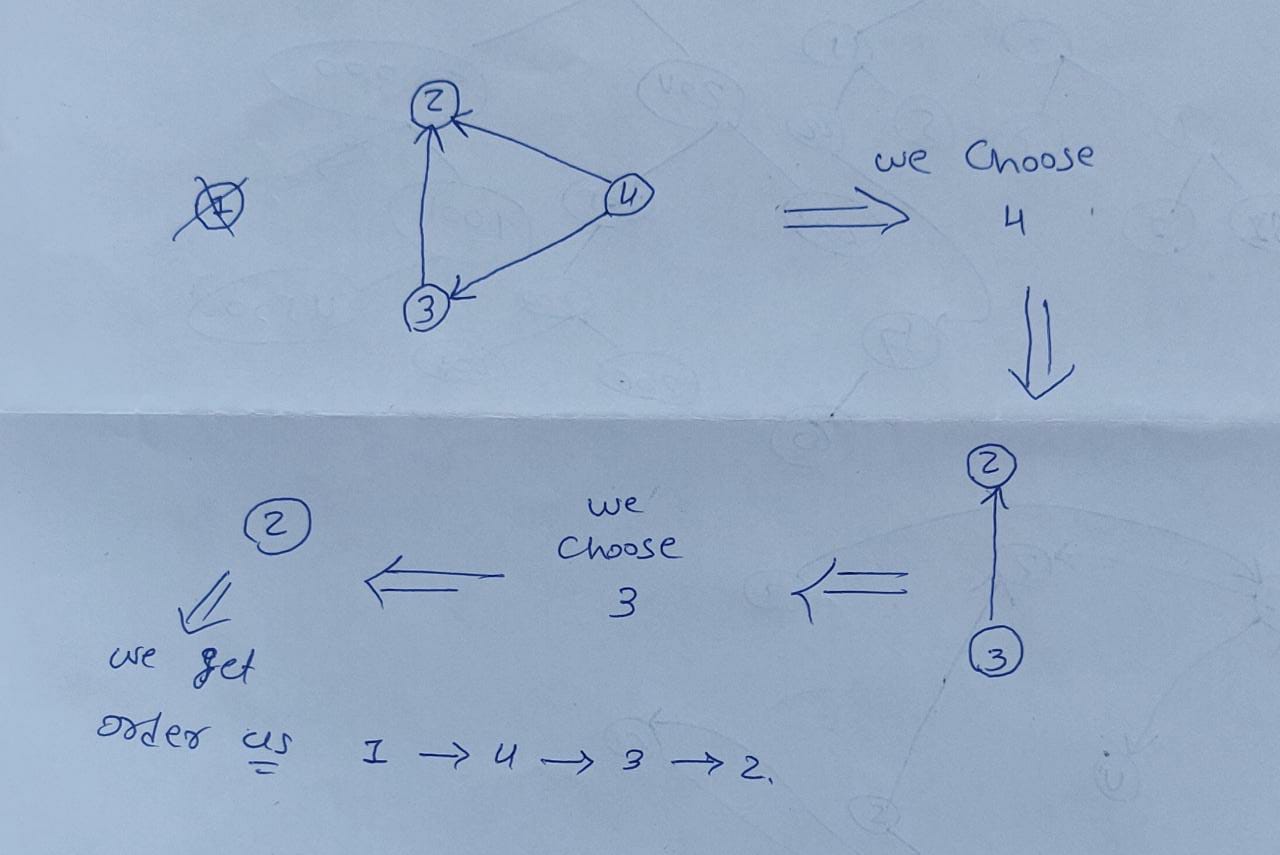 2
1
4
3
we Choose
4
2
3
we
Choose
3
2
we get
order as 1 → 4 → 3 → 2.